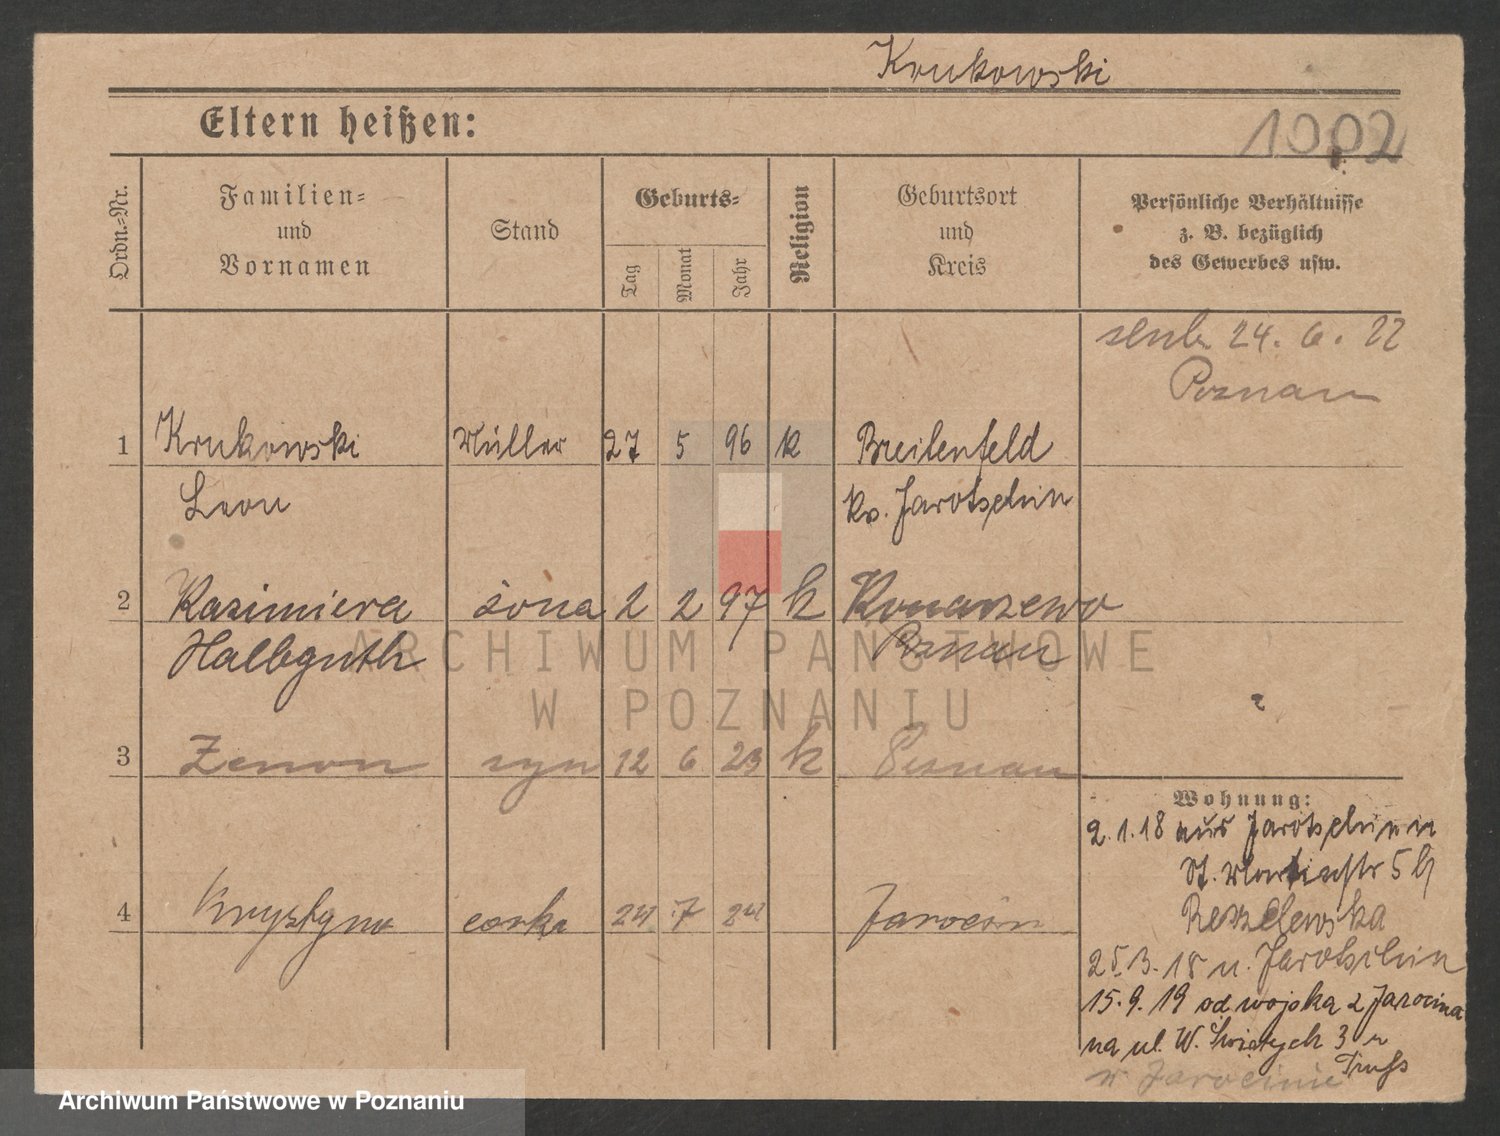 Krukowski
Eltern heißen:
1002
Ordn.-Nr.
Familien-
und
Vornamen
Stand
Geburts-
Tag
Monat
Jahr
Religion
Geburtsort
und
Kreis
Persönliche Verhältnisse
z. B. bezüglich
des Gewerbes usw.
24. 6. 22
Poznan
1 Krukowski Müller 27 5 96 k Breitenfeld
Leon Kr. Jarotschin
2 Kazimiera żona 2 2 97 k Konarzewo
Halbguth Poznan
ARCHIWUM PAŃSTWOWE
W POZNANIU
3 Zenon syn 12 6 23 k Poznan
4 Krystyna corka 24 7 24 Jarocin
Wohnung:
2.1.18 aus Jarotschin n
St. Martinstr 5
25.3.18 n. Jarotschin
15.9.19 od wojska z Jarocina
na ul. W. Świętych 3
w Jarocinie
Archiwum Państwowe w Poznaniu